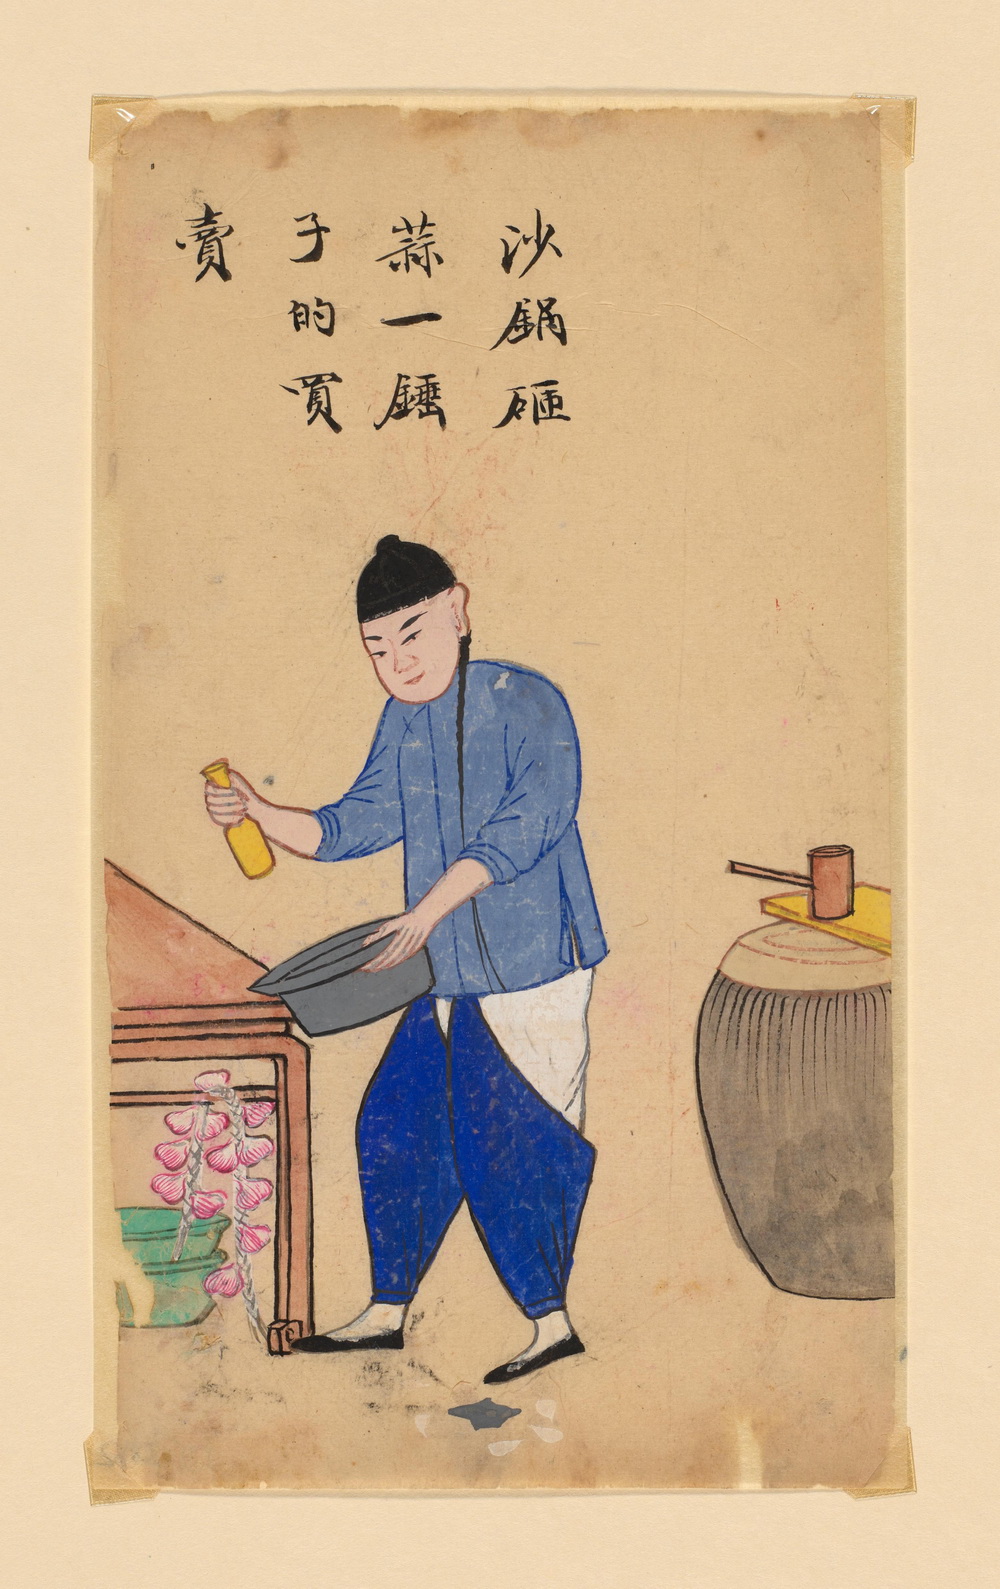 沙鍋砸
蒜一錘
子的買
賣